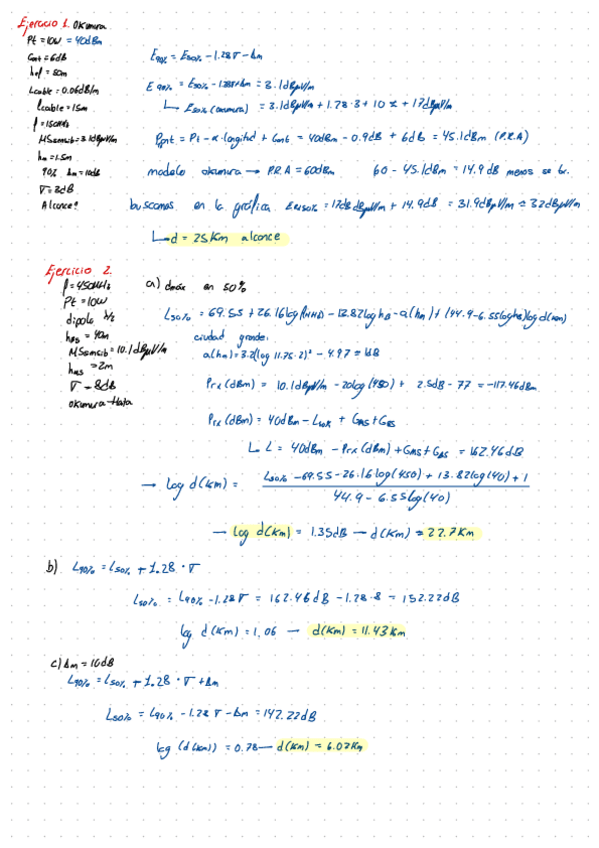 Ejercicio 1. Okumura
Pt = 10W = 40dBm
Gant = 6dB
hef = 50m
Lcable = 0.06dB/m
lcable = 15m
f = 150MHz
MSensib = 3.1dBμV/m
hm = 1.5m
90% Δm = 10dB
σ = 3dB
Alcance?
E90% = E50% - 1.28σ - Δm
E90% = E50% - 1.28σ - Δm = 3.1dBμV/m
↳ E50% (okumura) = 3.1dBμV/m + 1.28·3 + 10 ≈ +17dBμV/m
Pant = Pt - α·longitud + Gant = 40dBm - 0.9dB + 6dB = 45.1dBm (P.R.A)
modelo okumura → P.R.A = 60dBm 60 - 45.1dBm = 14.9 dB menos
buscamos en la gráfica 17dB dBμV/m + 14.9dB = 31.9dBμV/m ≈ 32dBμV/m
↳ d = 25Km alcance
Ejercicio 2.
f = 450MHz
Pt = 10W
dipolo λ/2
hBS = 40m
MSensib = 10.1dBμV/m
hMS = 2m
σ = 8dB
Okumura-Hata
a) dmáx en 50%
L50% = 69.55 + 26.16log f(MHz) - 13.82log hB - a(hm) + (44.9 - 6.55loghB)log d(Km)
ciudad grande:
a(hm) = 3.2(log 11.75·2)² - 4.97 = 1dB
Prx (dBm) = 10.1dBμV/m - 20log(450) + 2.5dB - 77 = -117.46dBm
Prx (dBm) = 40dBm - L50% + GMS + GBS
↳ L = 40dBm - Prx (dBm) + GMS + GBS = 162.46dB
→ log d(Km) = L50% - 69.55 - 26.16log(450) + 13.82log(40) + 1
44.9 - 6.55log(40)
→ log d(Km) = 1.35dB → d(Km) = 22.7Km
b) L90% = L50% + 1.28·σ
L50% = L90% - 1.28σ = 162.46dB - 1.28·8 = 152.22dB
log d(Km) = 1,06 → d(Km) = 11.43Km
c) Δm = 10dB
L90% = L50% + 1.28·σ + Δm
L50% = L90% - 1.28σ - Δm = 142.22dB
log (d(Km)) = 0.78 → d(Km) = 6.02Km